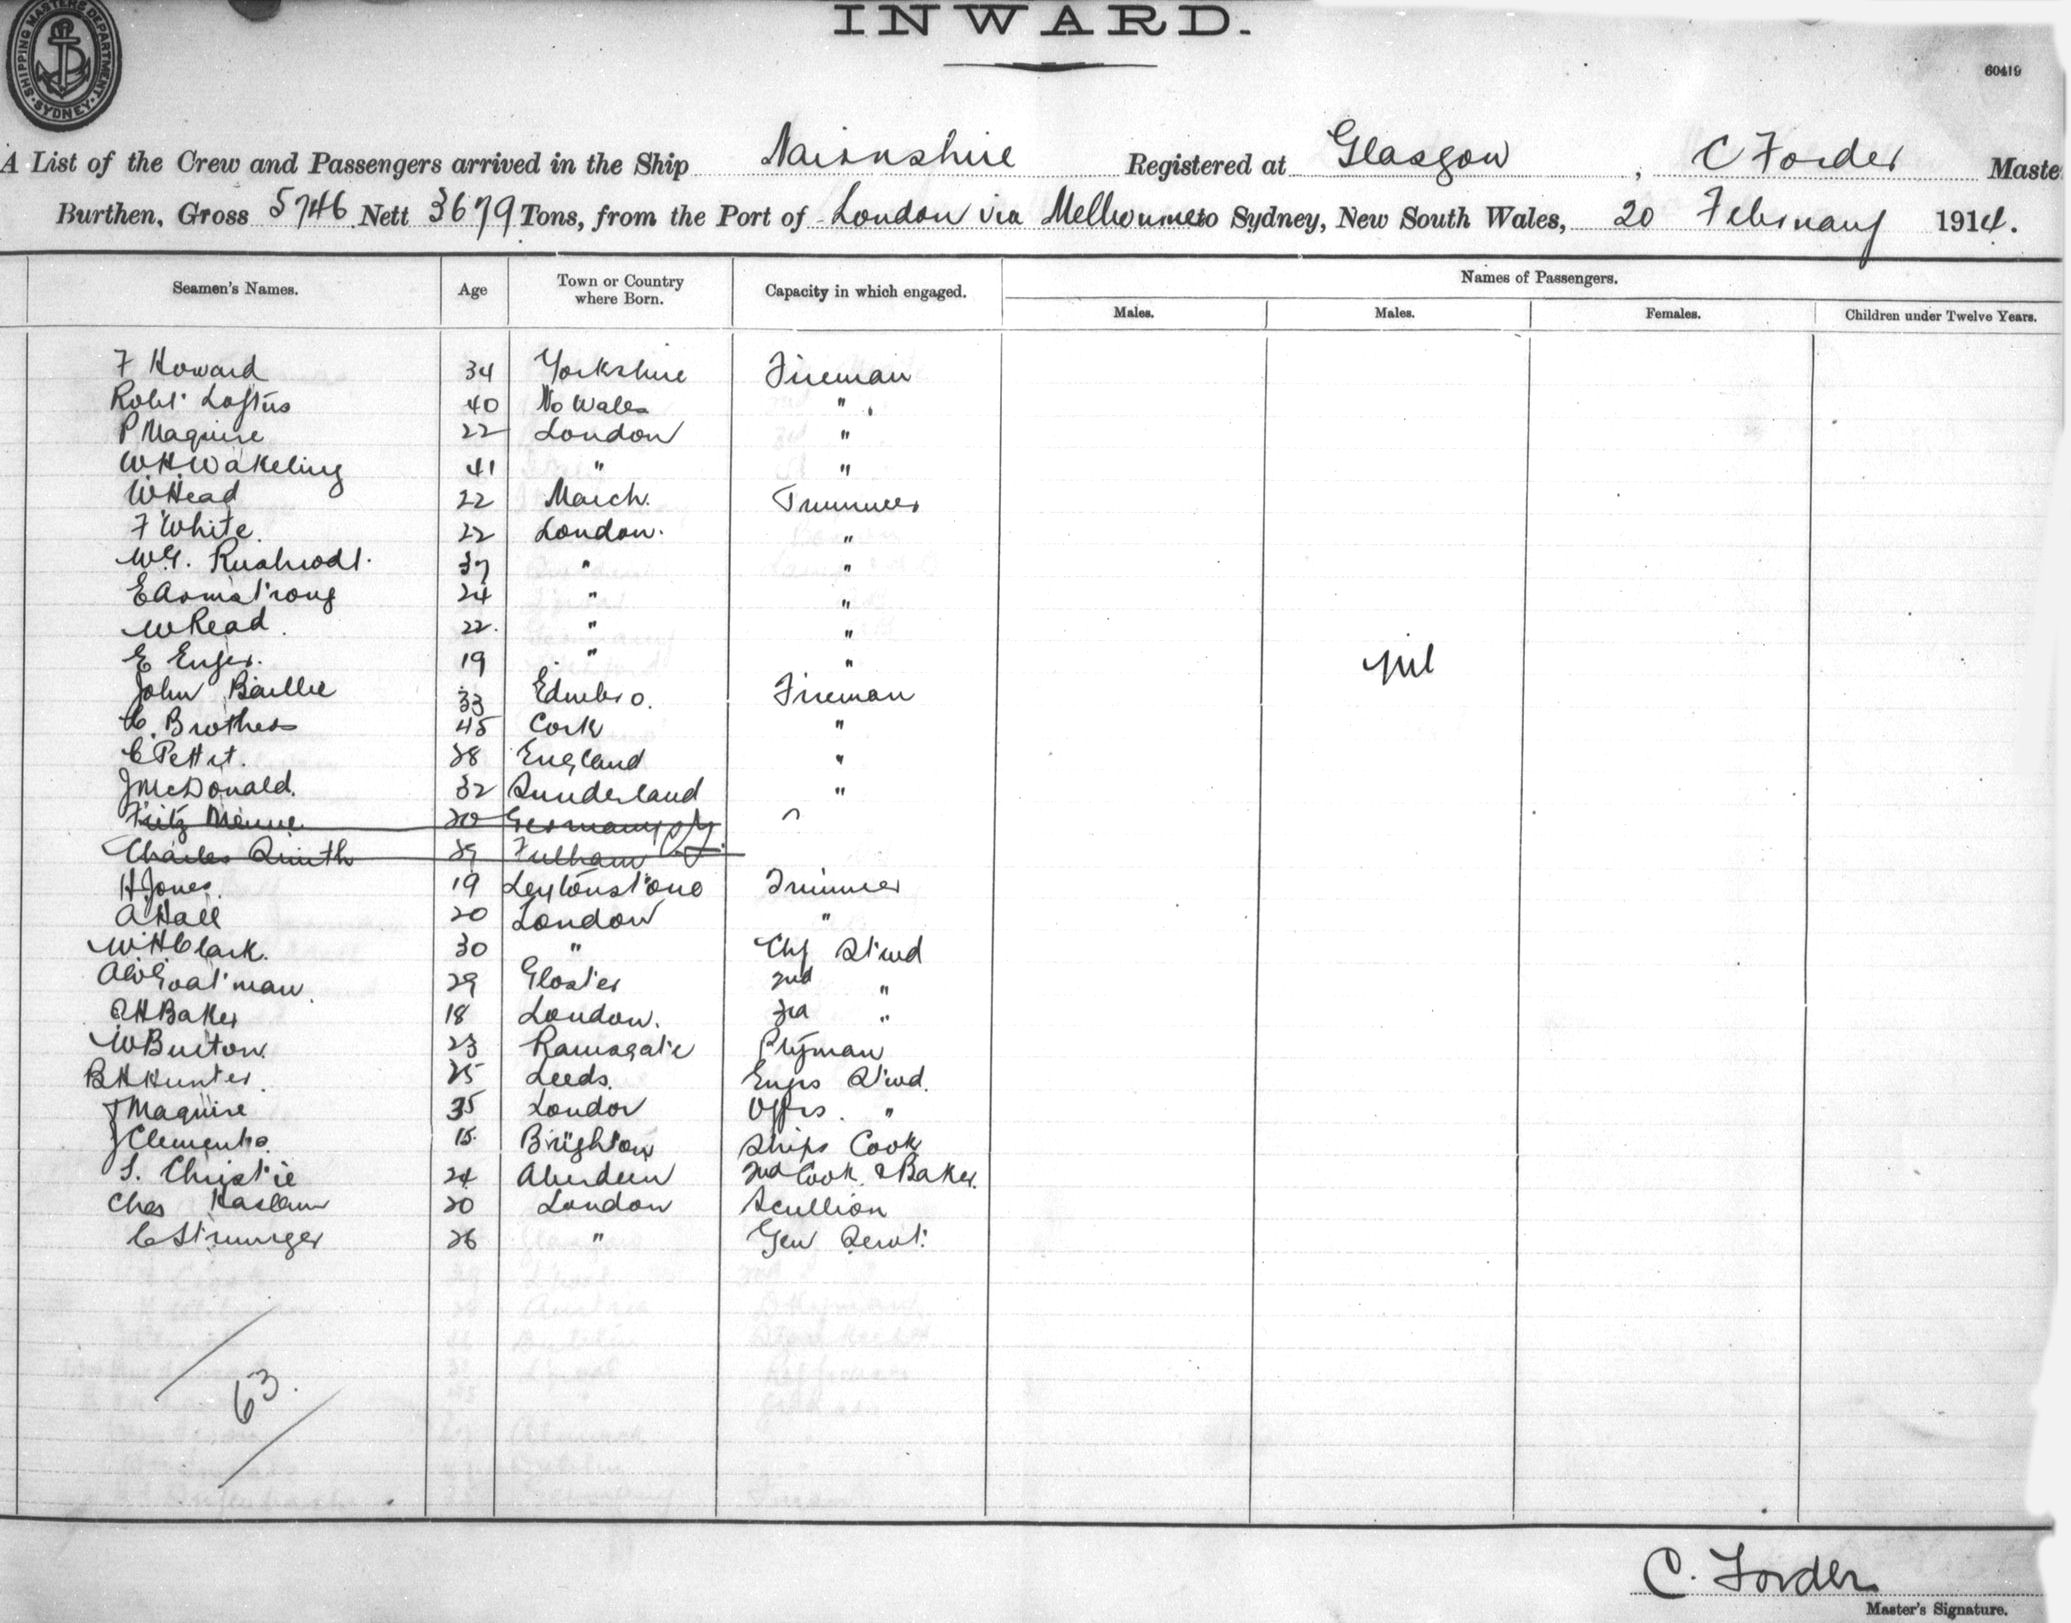 INWARD.
SHIPPING MASTERS DEPARTMENT · SYDNEY ·
60419
A List of the Crew and Passengers arrived in the Ship Nairnshire Registered at Glasgow, C Forder Maste
Burthen, Gross 5746 Nett 3679 Tons, from the Port of London via Melbourne to Sydney, New South Wales, 20 February 1914.
Seamen's Names. Age Town or Country where Born. Capacity in which engaged. Names of Passengers.
Males. Males. Females. Children under Twelve Years.
F Howard 34 Yorkshire Fireman
Robt Loftus 40 No Wales "
P Maguire 22 London "
W.H. Wakeling 41 " "
W Head 22 March. Trimmer
F White. 22 London. "
W.G. 37 " "
E Armstrong 24 " "
W Read. 22. " "
E 19 " "
nil
John Baillie 33 Edinbro. Fireman
C. Brothers 45 Cork "
C Pettit. 38 England "
J McDonald. 32 Sunderland "
Fritz Menne 20 Germany "
Charles Smith 39 Fulham
H Jones. 19 Leytonstone Trimmer
A Hall 20 London "
W. H Clark. 30 " Chf Stwd
A W Goatman. 29 Gloster 2nd "
H Baker 18 London. 3rd "
W Burton 23 Ramsgate Ptyman
B H Hunter. 25 Leeds. Engrs Stwd.
J Maguire 35 London Offrs. "
J Clements. 15. Brighton Ships Cook
S. Christie 24 Aberdeen 2nd Cook & Baker.
Chas Haslam 20 London Scullion
C Stringer 26 " Gen Servt.
63.
C. Forder
Master's Signature.